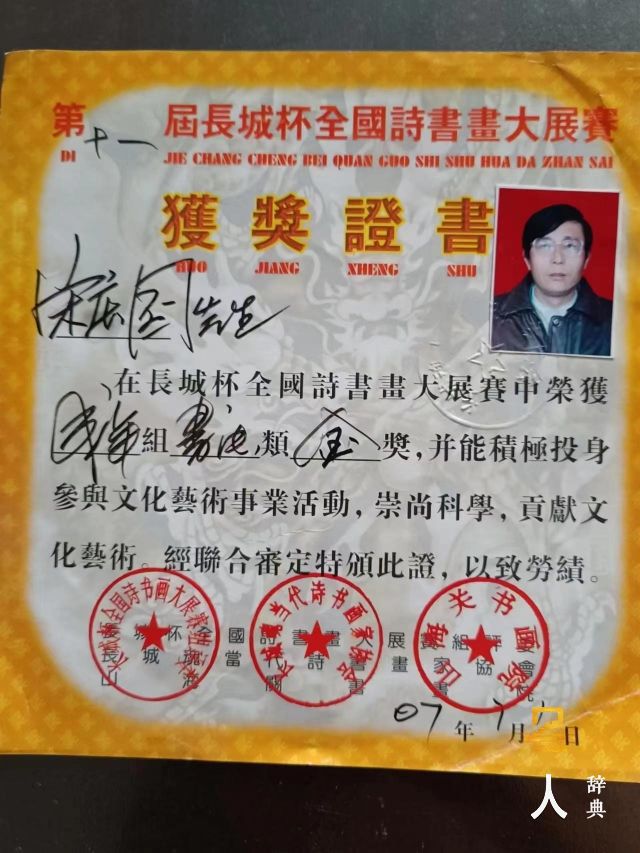 第十一届長城杯全國詩書畫大展賽
DI JIE CHANG CHENG BEI QUAN GUO SHI SHU HUA DA ZHAN SAI
獲獎證書
HUO JIANG ZHENG SHU
國先生
在長城杯全國詩書畫大展賽中榮獲
成年組書法類金獎，并能積極投身
參與文化藝術事業活動，崇尚科學，貢獻文
化藝術。經聯合審定特頒此證，以致勞績。
07年7月日
人
辞典